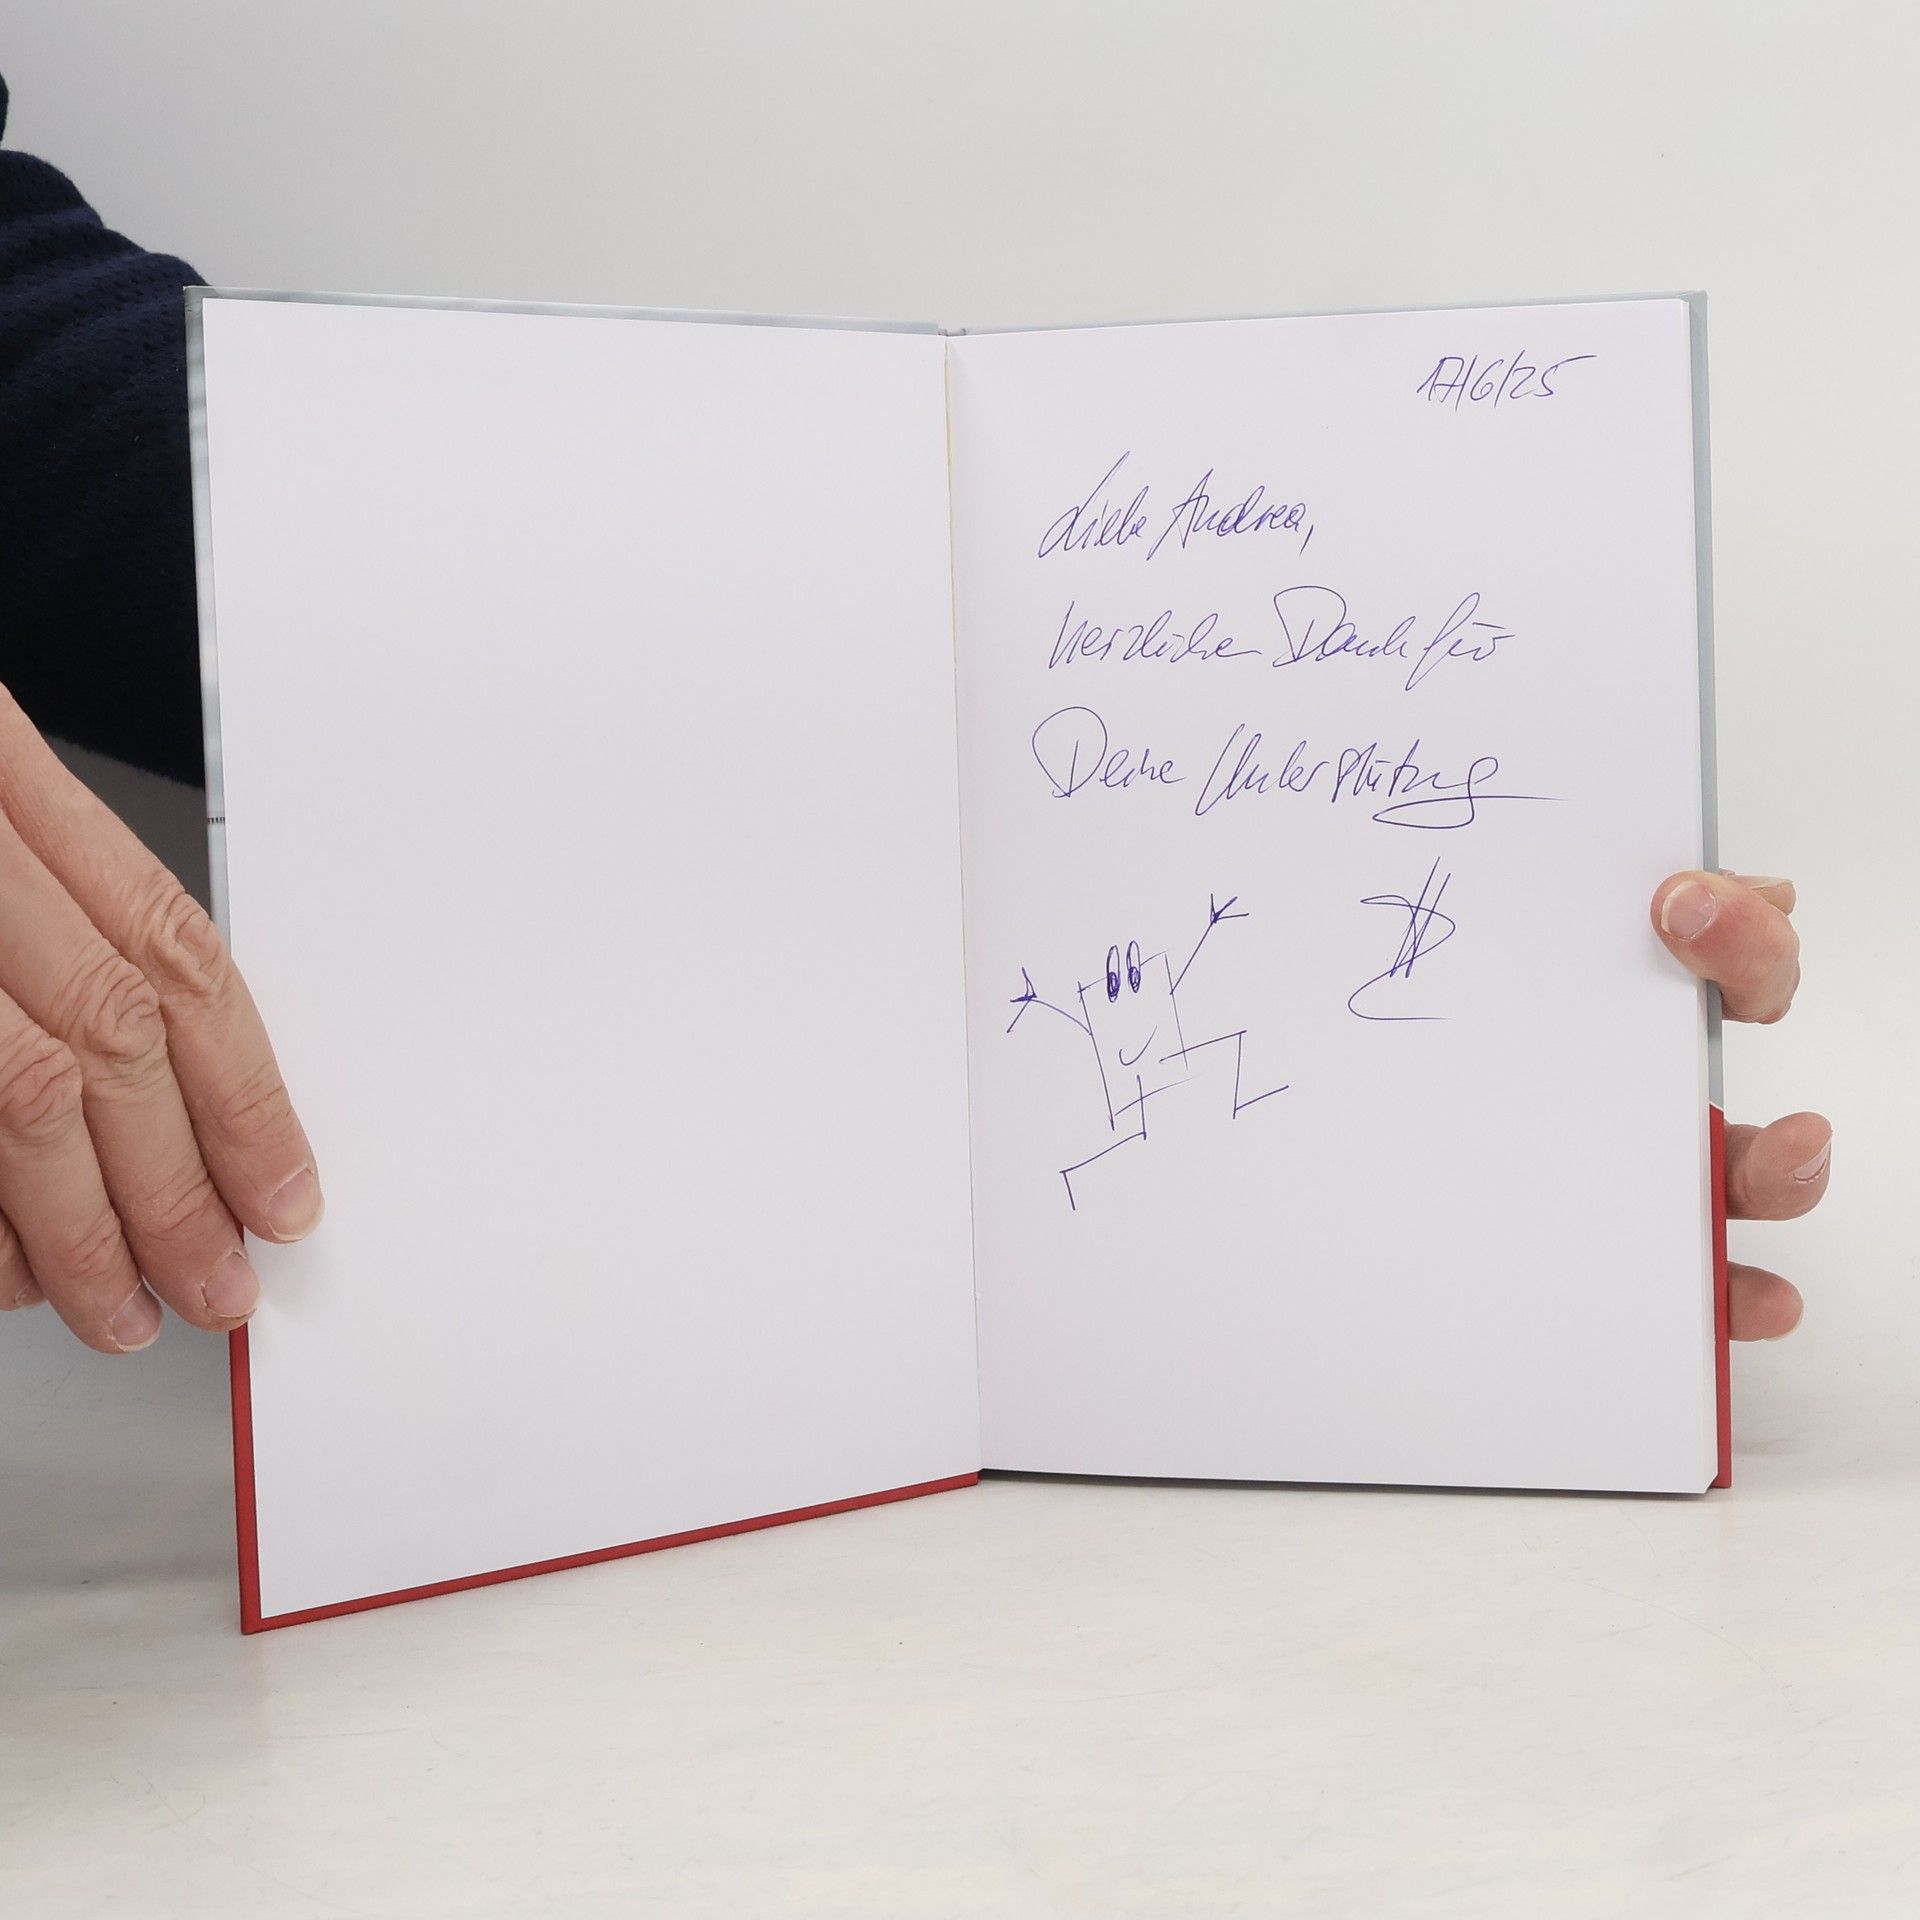 17/6/25
Liebe Andrea,
herzlichen Dank für
Deine Unterstützung